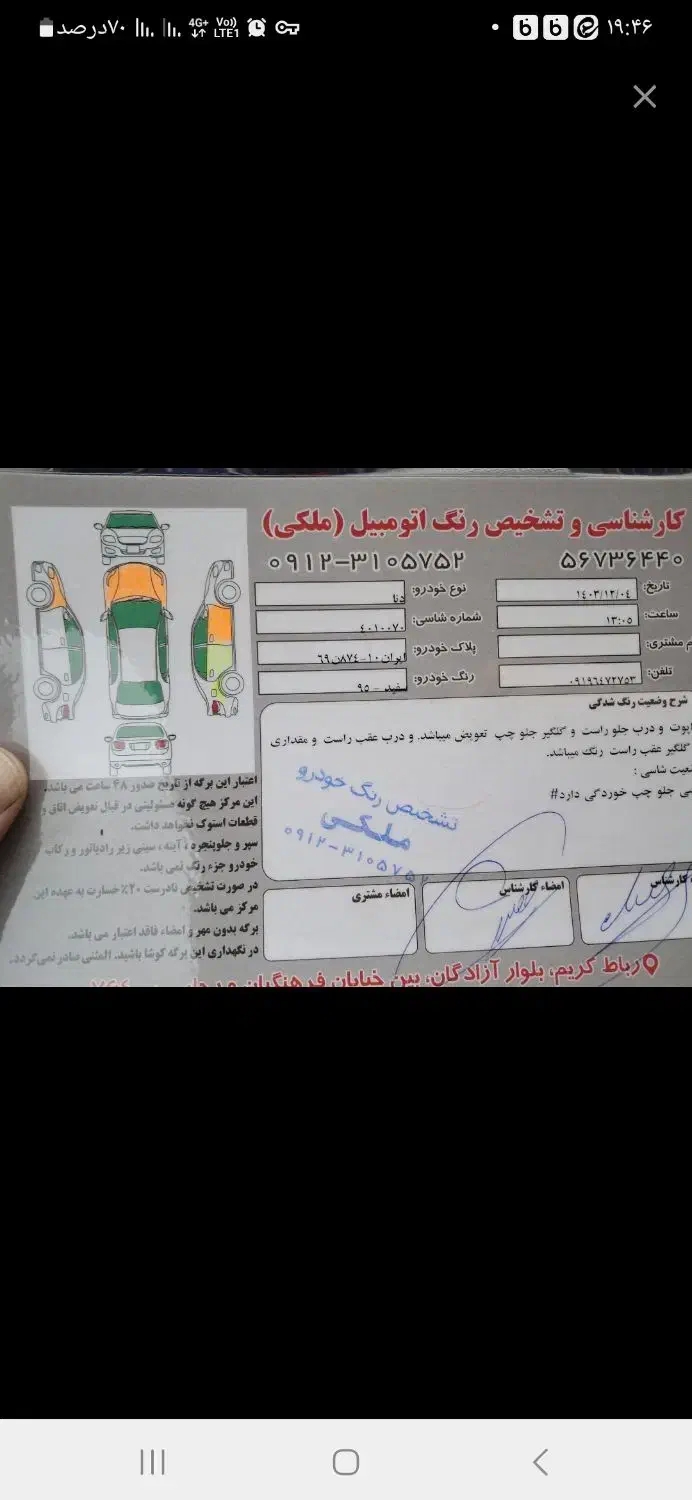 ۱۹:۴۶
4G+
Vo))
LTE1
۷۰درصد
کارشناسی و تشخیص رنگ اتومبیل (ملکی)
۵۶۷۳۶۴۴۰
۰۹۱۲-۳۱۰۵۷۵۲
تاریخ: ۱٤۰۳/۱۲/۰٤
نوع خودرو: دنا
ساعت: ۱۳:۰۵
شماره شاسی: ٤۰۱۰۰۷۰
م مشتری:
پلاک خودرو: ایران۱۰-۸۷٤ن۶۹
تلفن: ۰۹۱۹۶٤۷۲۷۵۳
رنگ خودرو: سفید - ۹۵
شرح وضعیت رنگ شدگی
اپوت و درب جلو راست و گلگیر جلو چپ تعویض میباشد. و درب عقب راست و مقداری
گلگیر عقب راست رنگ میباشد.
ضعیت شاسی :
سی جلو چپ خوردگی دارد#
تشخیص رنگ خودرو
ملکی
۰۹۱۲-۳۱۰۵۷۵۲
کارشناس
امضاء کارشناس
امضاء مشتری
اعتبار این برگه از تاریخ صدور ۴۸ ساعت می باشد.
این مرکز هیچ گونه مسئولیتی در قبال تعویض اتاق و
قطعات استوک نخواهد داشت.
سپر و جلوپنجره ، آینه ، سینی زیر رادیاتور و رکاب
خودرو جزء رنگ نمی باشد.
در صورت تشخیص نادرست ۲۰٪ خسارت به عهده این
مرکز می باشد.
برگه بدون مهر و امضاء فاقد اعتبار می باشد.
در نگهداری این برگه کوشا باشید. المثنی صادر نمی گردد.
رباط کریم، بلوار آزادگان، بین خیابان فرهنگیان و